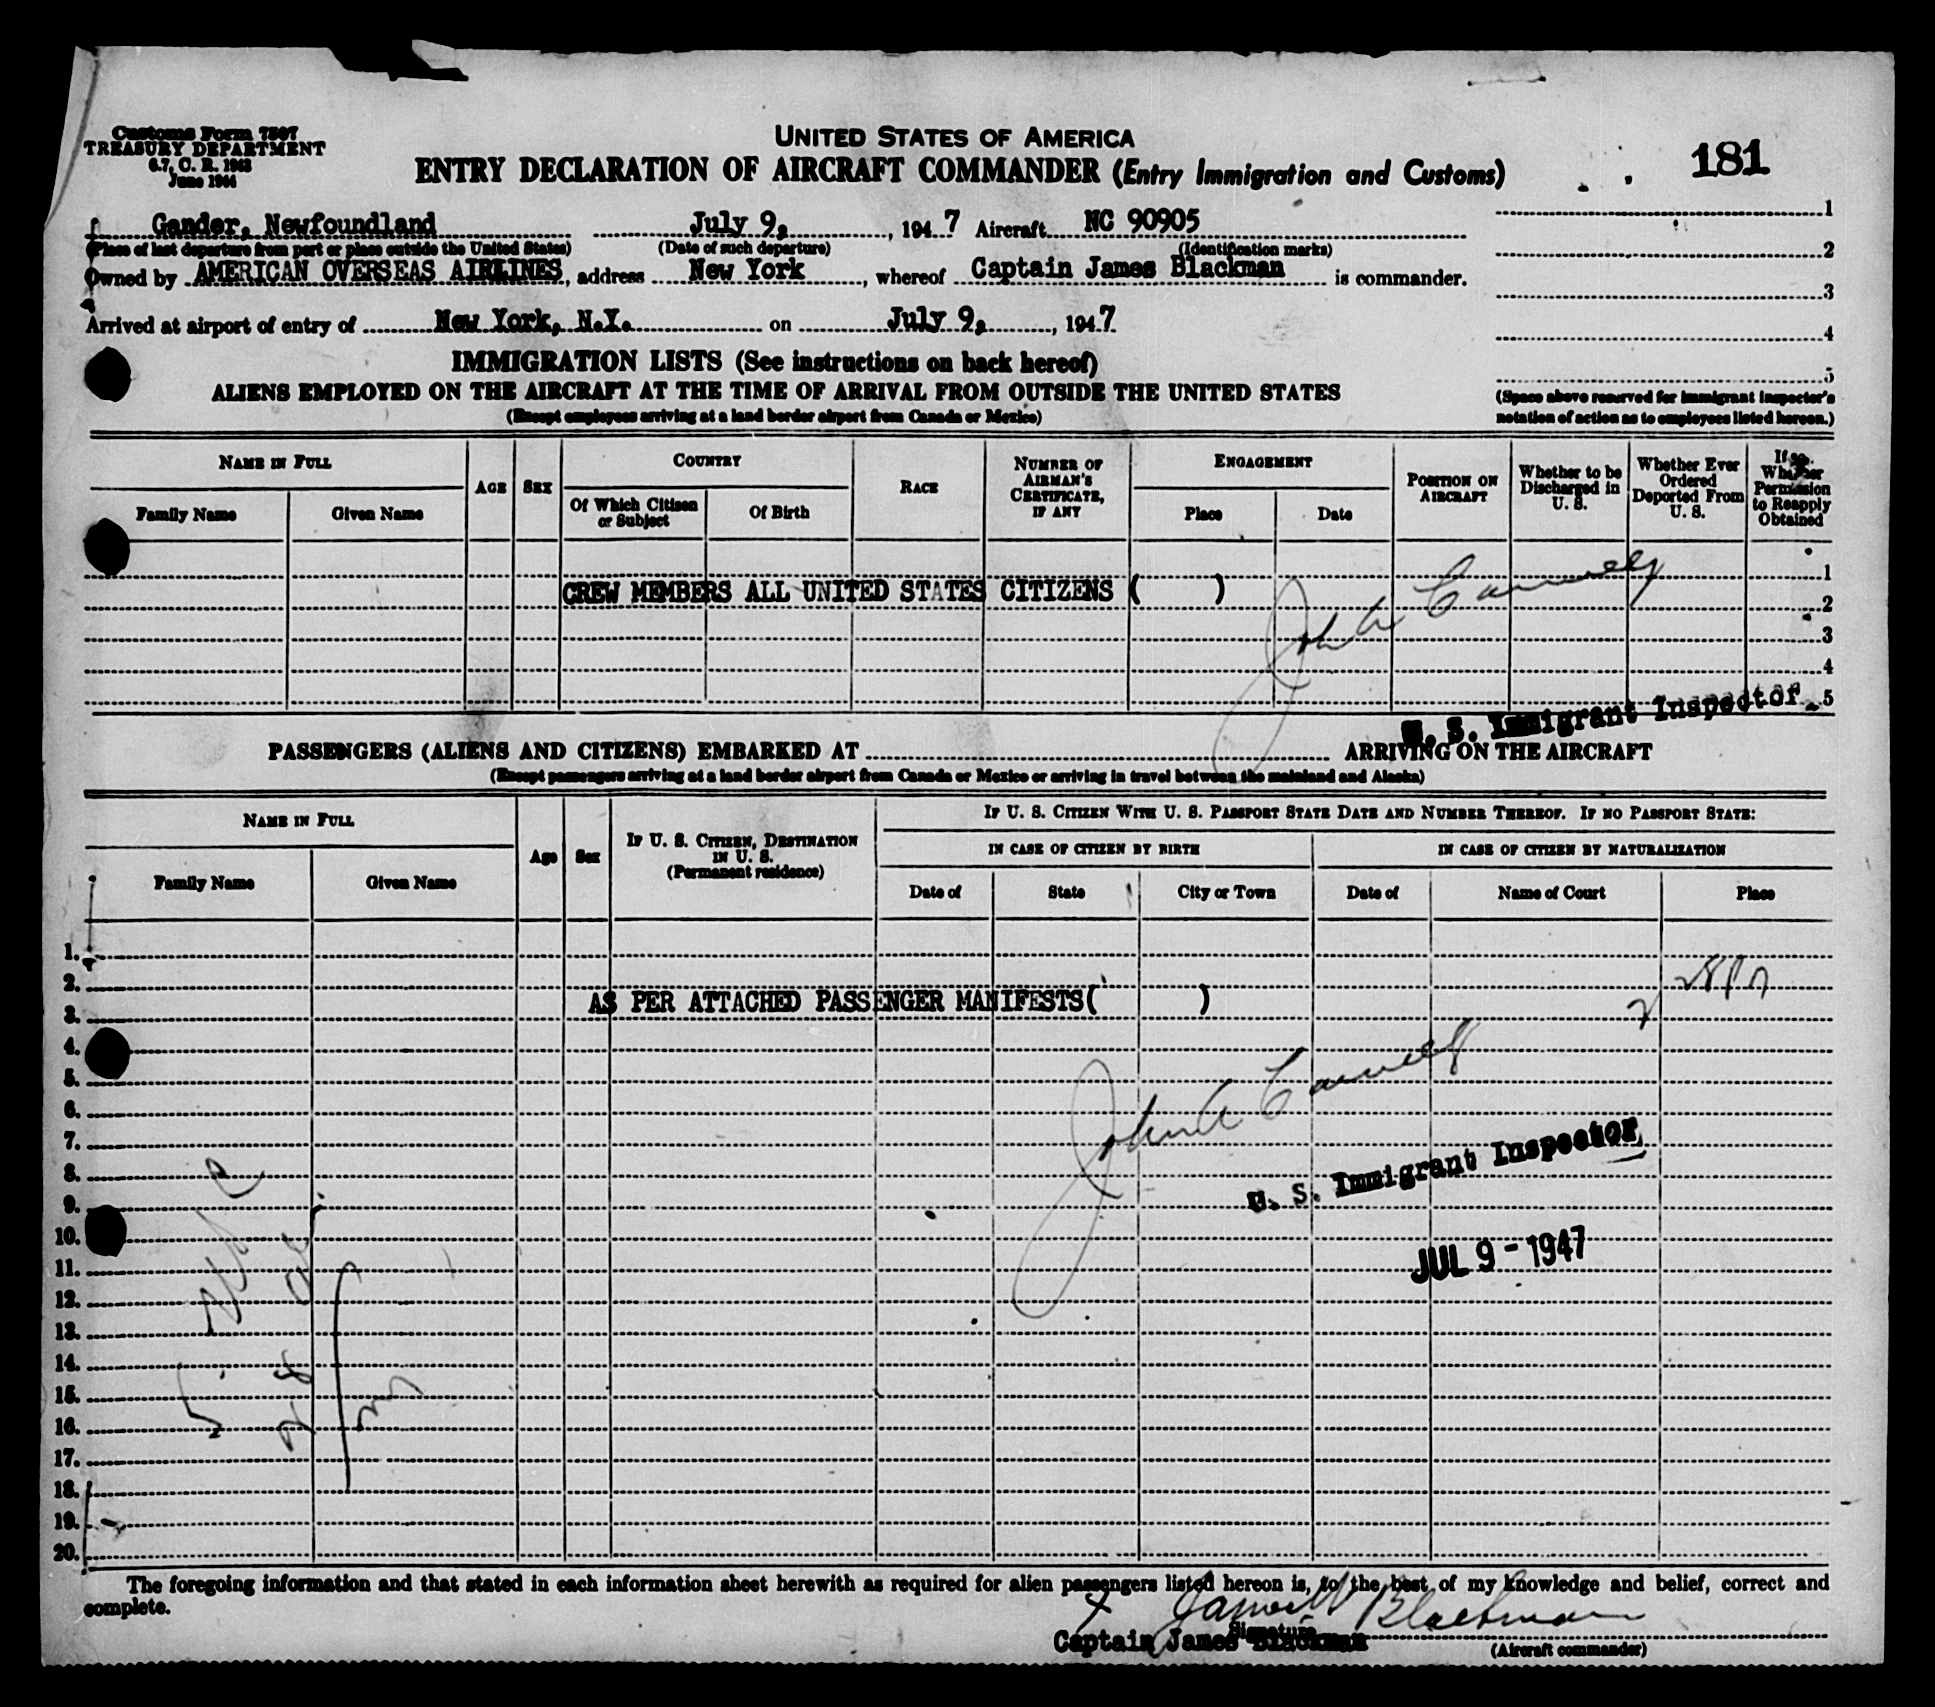 Customs Form 7507
TREASURY DEPARTMENT
6.7, C. R. 1943
June 1944
UNITED STATES OF AMERICA
ENTRY DECLARATION OF AIRCRAFT COMMANDER (Entry Immigration and Customs)
181
Gander, Newfoundland July 9, , 1947 Aircraft NC 90905
(Place of last departure from port or place outside the United States) (Date of such departure) (Identification marks)
Owned by AMERICAN OVERSEAS AIRLINES, address New York, whereof Captain James Blackman is commander.
Arrived at airport of entry of New York, N.Y. on July 9, , 1947
1
2
3
4
5
(Space above reserved for immigrant inspector's
notation of action as to employees listed hereon.)
IMMIGRATION LISTS (See instructions on back hereof)
ALIENS EMPLOYED ON THE AIRCRAFT AT THE TIME OF ARRIVAL FROM OUTSIDE THE UNITED STATES
(Except employees arriving at a land border airport from Canada or Mexico)
NAME IN FULL
Family Name
Given Name
AGE
SEX
COUNTRY
Of Which Citizen
or Subject
Of Birth
RACE
NUMBER OF
AIRMAN'S
CERTIFICATE,
IF ANY
ENGAGEMENT
Place
Date
POSITION ON
AIRCRAFT
Whether to be
Discharged in
U. S.
Whether Ever
Ordered
Deported From
U. S.
If so,
Whether
Permission
to Reapply
Obtained
1
CREW MEMBERS ALL UNITED STATES CITIZENS ( )
2
3
4
5
John A
U. S. Immigrant Inspector
PASSENGERS (ALIENS AND CITIZENS) EMBARKED AT ARRIVING ON THE AIRCRAFT
(Except passengers arriving at a land border airport from Canada or Mexico or arriving in travel between the mainland and Alaska)
NAME IN FULL
Family Name
Given Name
Age
Sex
IF U. S. CITIZEN, DESTINATION
IN U. S.
(Permanent residence)
IF U. S. CITIZEN WITH U. S. PASSPORT STATE DATE AND NUMBER THEREOF. IF NO PASSPORT STATE:
IN CASE OF CITIZEN BY BIRTH
IN CASE OF CITIZEN BY NATURALIZATION
Date of
State
City or Town
Date of
Name of Court
Place
1.
2.
AS PER ATTACHED PASSENGER MANIFESTS( )
3.
4.
5.
6.
John A
7.
8.
U. S. Immigrant Inspector
9.
10.
JUL 9 - 1947
11.
12.
13.
14.
15.
16.
17.
18.
19.
20.
The foregoing information and that stated in each information sheet herewith as required for alien passengers listed hereon is, to the best of my knowledge and belief, correct and
complete.
James W Blackman
Signature
Captain James Blackman
(Aircraft commander)